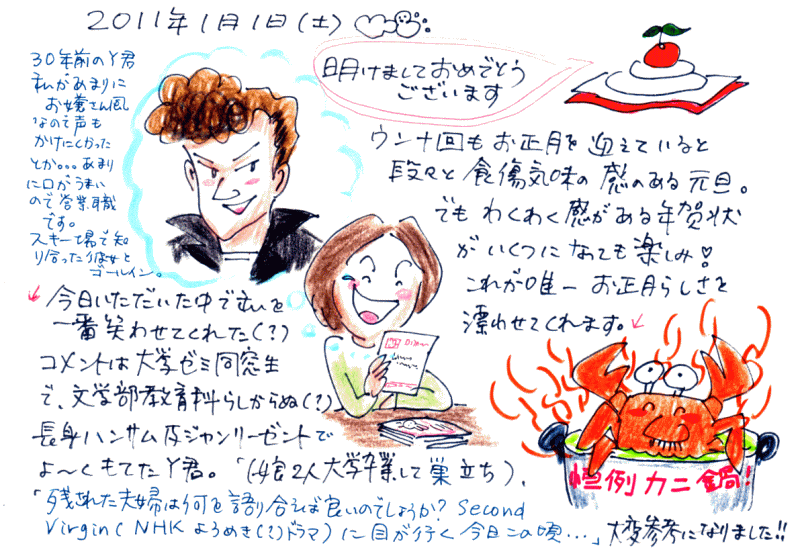 2011年1月1日(土)
明けましておめでとう
ございます
30年前のY君
私があまりに
お嬢さん風
なので声も
かけにくかった
とか。。。あまり
に口がうまい
ので営業職
です。
スキー場で知
り合った彼女と
ゴールイン。
ウン十回もお正月を迎えていると
段々と食傷気味の感のある元旦。
でもわくわく感がある年賀状
がいくつになっても楽しみ!
これが唯一お正月らしさを
漂わせてくれます。
今日いただいた中で私を
一番笑わせてくれた(?)
コメントは大学ゼミ同窓生
で、文学部教育科らしからぬ(?)
長身ハンサム及ジャンリーゼントで
よ〜くもてたY君。「(娘2人大学卒業して巣立ち)、
「残された夫婦は何を語り合えば良いのでしょうか? Second
Virgin(NHKよろめき(?)ドラマ)に目が行く今日この頃…」
恒例カニ鍋!
大変参考になりました!!